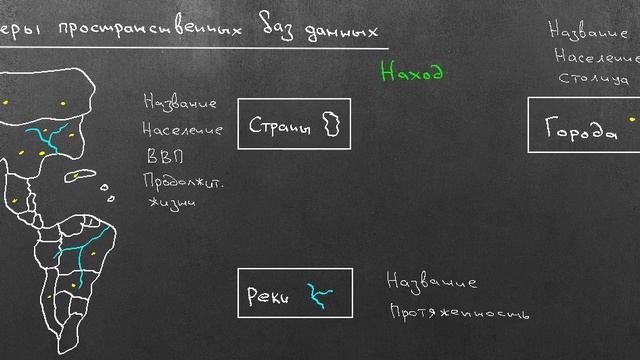 еры пространственных баз данных
Наход
Название
Население
Столица
Название
Население
ВВП
Продолжит.
жизни
Страны
Города
Реки
Название
Протяженность